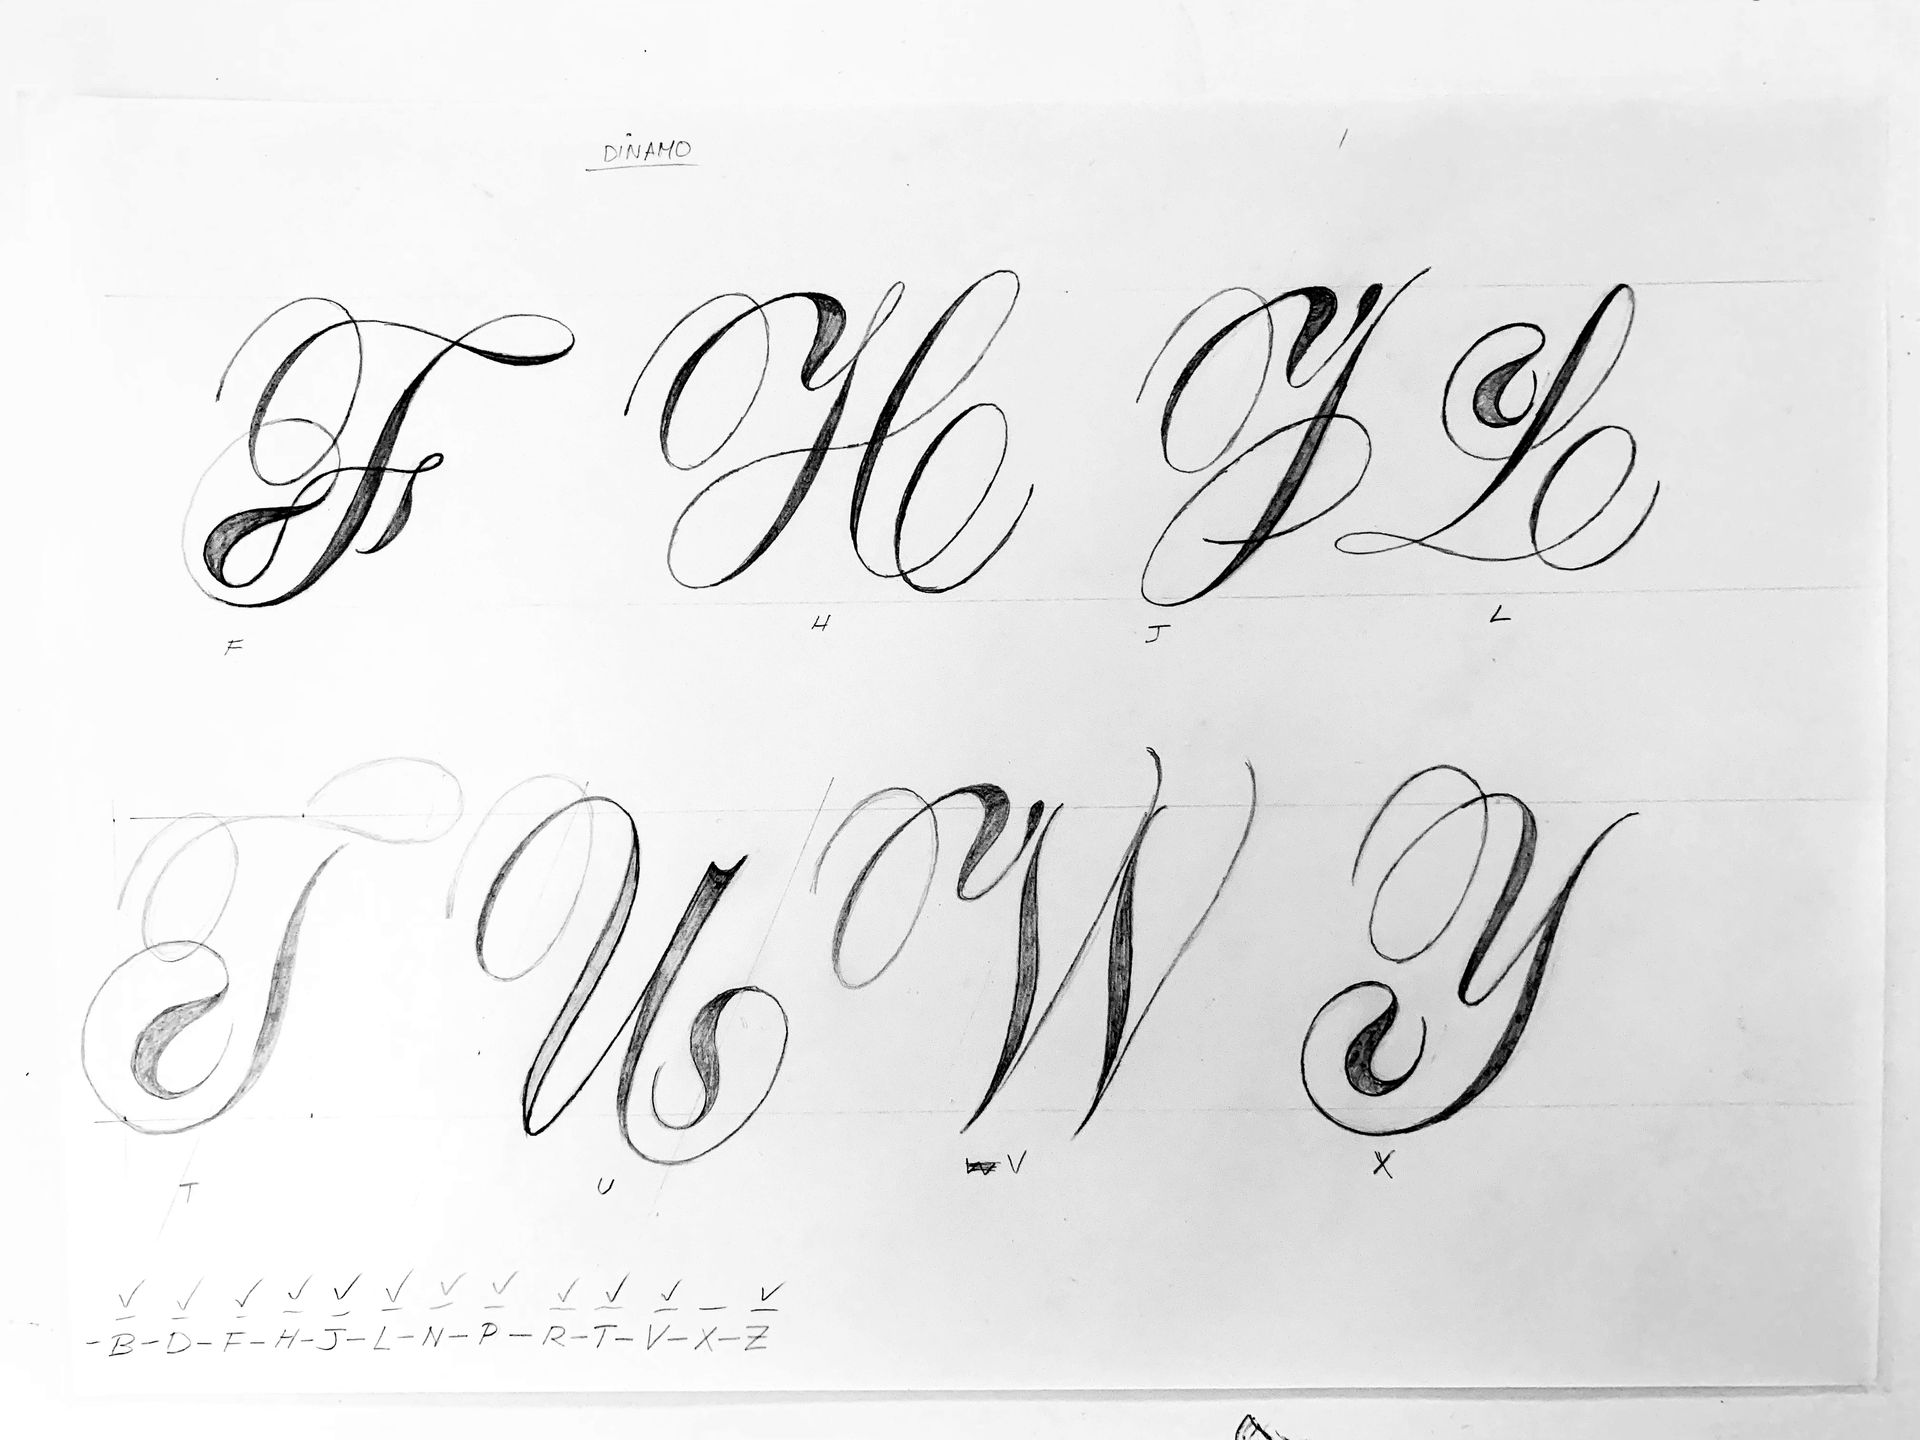 DiNAMO
F H J L
F H J L
T U W Y
T U W V X
✓ ✓ ✓ ✓ ✓ ✓ ✓ ✓ ✓ ✓ ✓ _ ✓
-B-D-F-H-J-L-N-P-R-T-V-X-Z